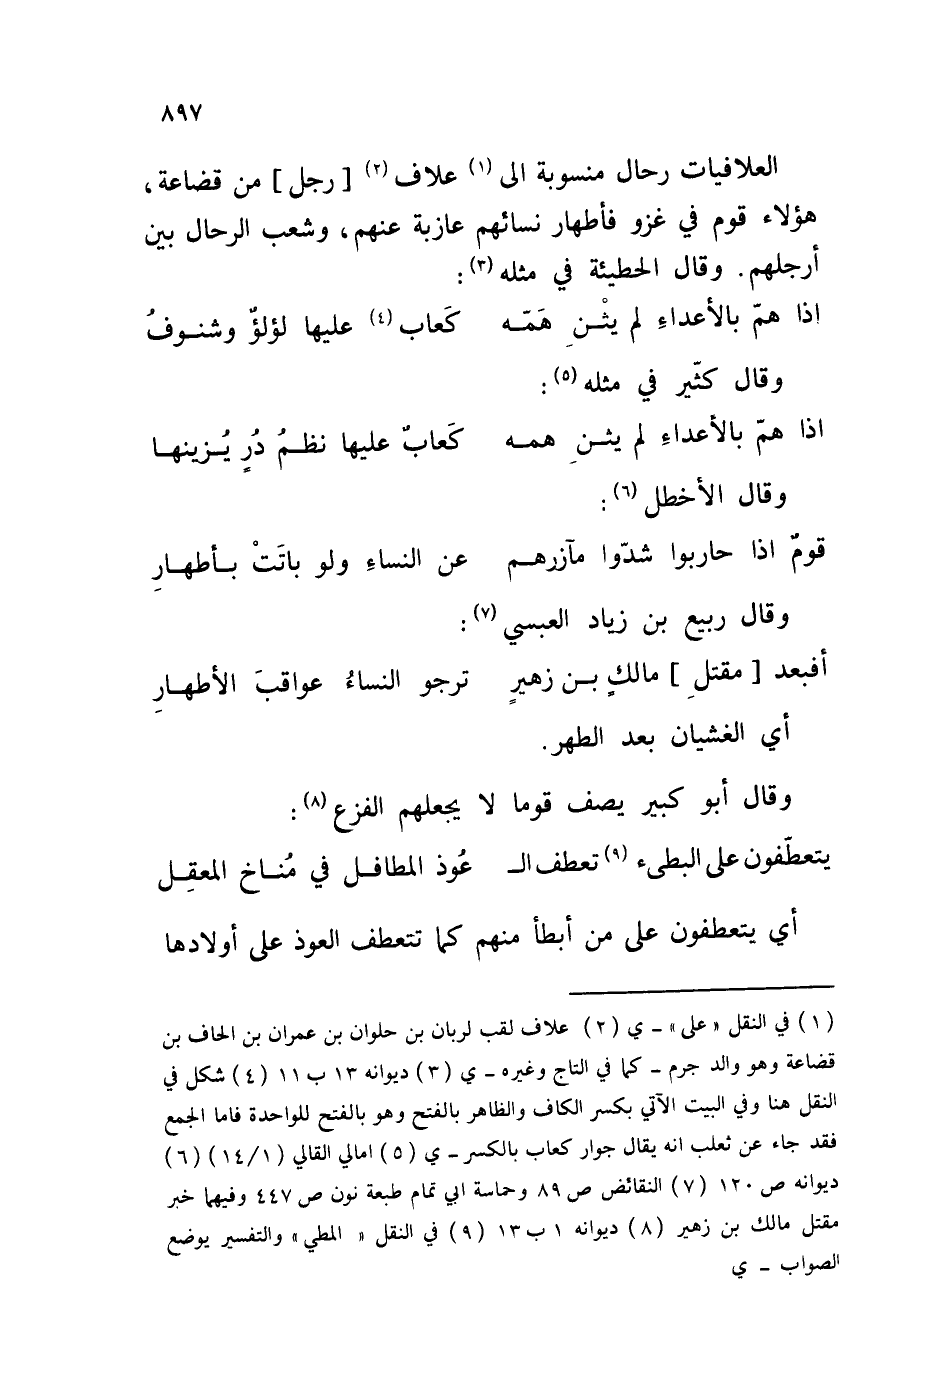 ٨٩٧
العلافيات رحال منسوبة الى (١) علاف (٢) [ رجل ] من قضاعة،
هؤلاء قوم في غزو فأطهار نسائهم عازبة عنهم، وشعب الرحال بين
أرجلهم. وقال الحطيئة في مثله (٣) :
اذا همّ بالأعداءِ لم يثْنِ هَمّه كَعاب (٤) عليها لؤلؤٌ وشنوفُ
وقال كثّير في مثله (٥) :
اذا همّ بالأعداءِ لم يثنِ همه كَعابٌ عليها نظمُ دُرٍ يُزينها
وقال الأخطل (٦) :
قومٌ اذا حاربوا شدّوا مآزرهم عن النساءِ ولو باتَتْ بأطهارِ
وقال ربيع بن زياد العبسي (٧) :
أفبعد [ مقتلِ ] مالكٍ بن زهيرٍ ترجو النساءُ عواقبَ الأطهارِ
أي الغشيان بعد الطهر.
وقال أبو كبير يصف قوما لا يجعلهم الفزع (٨) :
يتعطّفون على البطىء (٩) تعطف الـ عُوذ المطافل في مُناخ المعقِل
أي يتعطفون على من أبطأ منهم كما تتعطف العوذ على أولادها
(١) في النقل « على» ـ ي (٢) علاف لقب لربان بن حلوان بن عمران بن الحاف بن
قضاعة وهو والد جرم ـ كما في التاج وغيره ـ ي (٣) ديوانه ١٣ ب ١١ (٤) شكل في
النقل هنا وفي البيت الآتي بكسر الكاف والظاهر بالفتح وهو بالفتح للواحدة فاما الجمع
فقد جاء عن ثعلب انه يقال جوار كعاب بالكسر ـ ي (٥) امالي القالي (١/ ١٤) (٦)
ديوانه ص ١٢٠ (٧) النقائض ص ٨٩ وحماسة ابي تمام طبعة نون ص ٤٤٧ وفيهما خبر
مقتل مالك بن زهير (٨) ديوانه ١ ب ١٣ (٩) في النقل « المطي» والتفسير يوضع
الصواب ـ ي